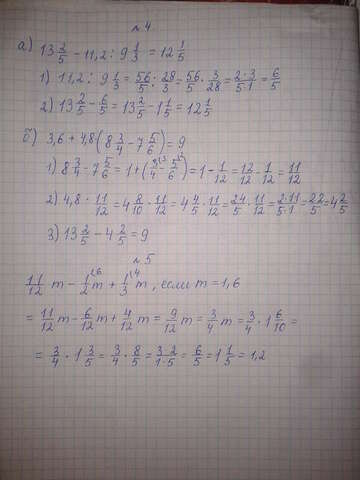 № 4
а) 13 2/5 − 11,2 : 9 1/3 = 12 1/5
1) 11,2 : 9 1/3 = 56/5 : 28/3 = 56/5 · 3/28 = 2·3/5·1 = 6/5
2) 13 2/5 − 6/5 = 13 2/5 − 1 1/5 = 12 1/5
б) 3,6 + 4,8 (8 3/4 − 7 5/6) = 9
1) 8 3/4 − 7 5/6 = 1 + (3/4 − 5/6) = 1 − 1/12 = 12/12 − 1/12 = 11/12
2) 4,8 · 11/12 = 4 8/10 · 11/12 = 4 4/5 · 11/12 = 24/5 · 11/12 = 2·11/5·1 = 22/5 = 4 2/5
3) 13 2/5 − 4 2/5 = 9
№ 5
11/12 m − 1/2 m + 1/3 m, если m = 1,6
= 11/12 m − 6/12 m + 4/12 m = 9/12 m = 3/4 m = 3/4 · 1 6/10 =
= 3/4 · 1 3/5 = 3/4 · 8/5 = 3·2/1·5 = 6/5 = 1 1/5 = 1,2